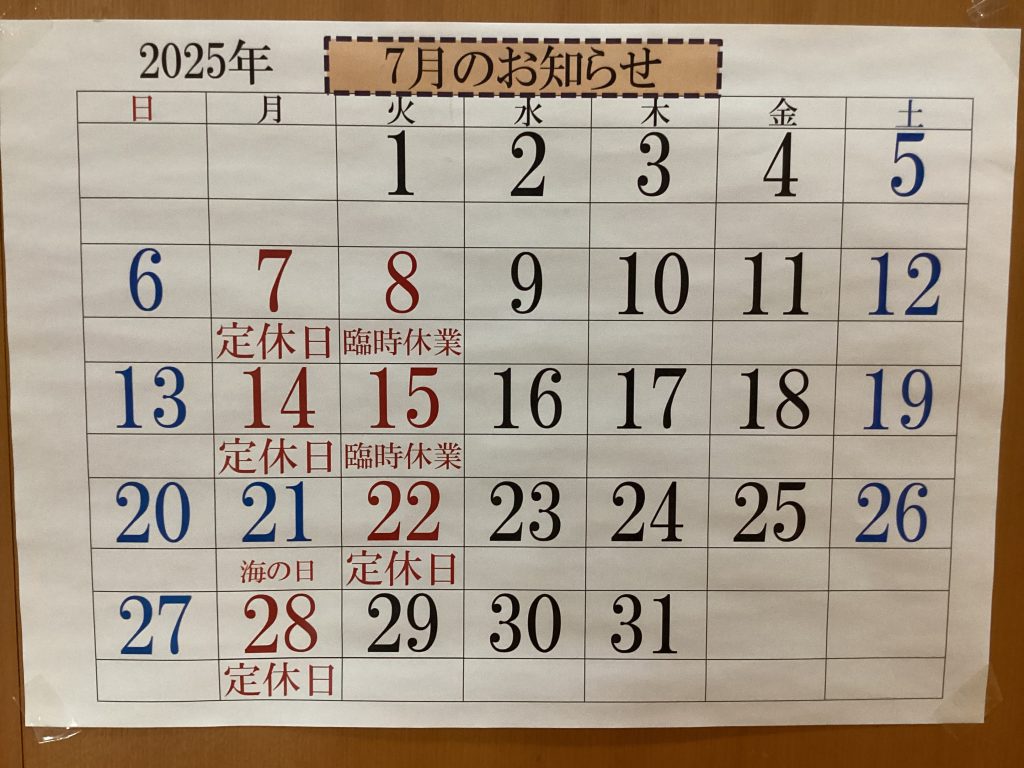 2025年 7月のお知らせ
日 月 火 水 木 金 土
1 2 3 4 5
6 7 8 9 10 11 12
定休日 臨時休業
13 14 15 16 17 18 19
定休日 臨時休業
20 21 22 23 24 25 26
海の日 定休日
27 28 29 30 31
定休日